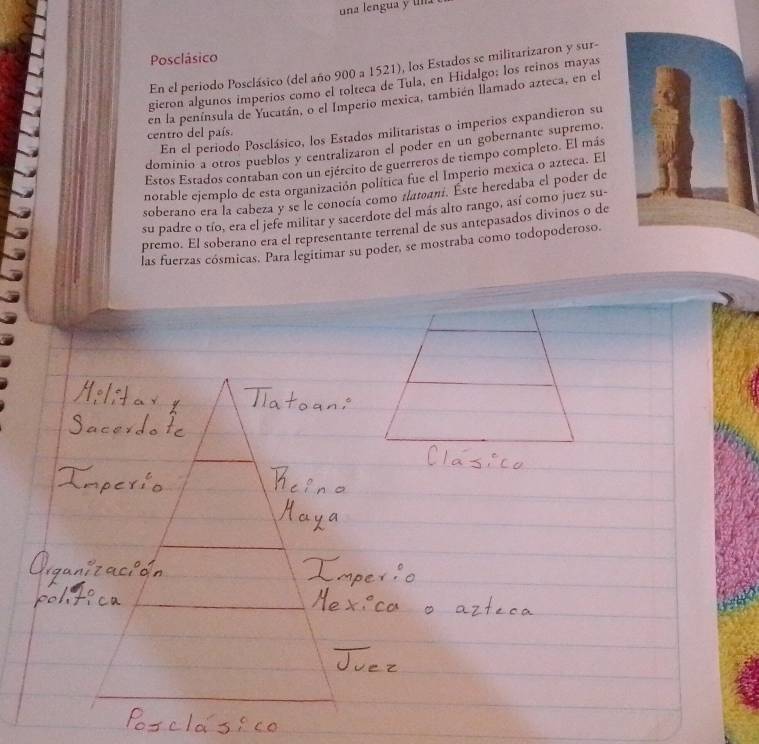 una lengua y una
Posclásico
En el periodo Posclásico (del año 900 a 1521), los Estados se militarizaron y sur-
gieron algunos imperios como el tolteca de Tula, en Hidalgo; los reinos mayas
en la península de Yucatán, o el Imperio mexica, también llamado azteca, en el
centro del país.
En el periodo Posclásico, los Estados militaristas o imperios expandieron su
dominio a otros pueblos y centralizaron el poder en un gobernante supremo.
Estos Estados contaban con un ejército de guerreros de tiempo completo. El más
notable ejemplo de esta organización política fue el Imperio mexica o azteca. El
soberano era la cabeza y se le conocía como tlatoani. Éste heredaba el poder de
su padre o tío, era el jefe militar y sacerdote del más alto rango, así como juez su-
premo. El soberano era el representante terrenal de sus antepasados divinos o de
las fuerzas cósmicas. Para legitimar su poder, se mostraba como todopoderoso.
Clásico
Militar y
Sacerdote
Tlatoani
Imperio
Reino
Maya
Organización
política
Imperio
Mexica o azteca
Juez
Posclásico